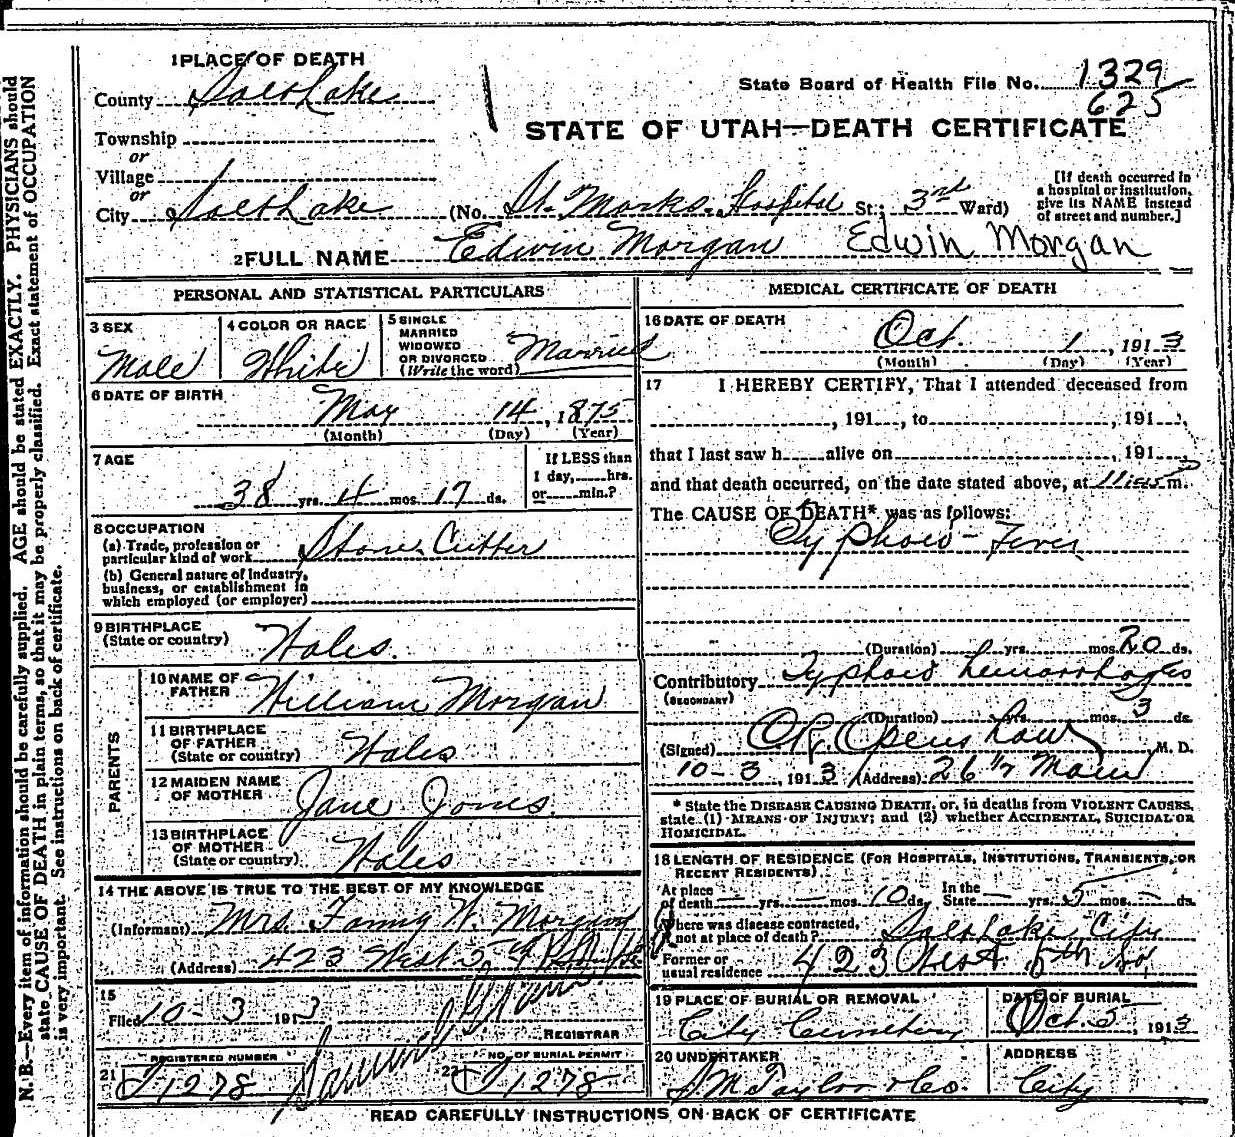 1 PLACE OF DEATH
County Salt Lake
Township
or
Village
or
City Salt Lake (No. St. Marks Hospital St.; 3rd Ward)
State Board of Health File No. 1329
625
STATE OF UTAH—DEATH CERTIFICATE
[If death occurred in a hospital or institution, give its NAME instead of street and number.]
2 FULL NAME Edwin Morgan Edwin Morgan
PERSONAL AND STATISTICAL PARTICULARS
3 SEX
Male
4 COLOR OR RACE
White
5 SINGLE
MARRIED
WIDOWED
OR DIVORCED
(Write the word) Married
6 DATE OF BIRTH
May 14, 1875
(Month) (Day) (Year)
7 AGE
38 yrs. 4 mos. 17 ds.
If LESS than
1 day, hrs.
or min.?
8 OCCUPATION
(a) Trade, profession or
particular kind of work Stone Cutter
(b) General nature of Industry,
business, or establishment in
which employed (or employer)
9 BIRTHPLACE
(State or country) Wales.
PARENTS
10 NAME OF
FATHER William Morgan
11 BIRTHPLACE
OF FATHER
(State or country) Wales
12 MAIDEN NAME
OF MOTHER Jane Jones.
13 BIRTHPLACE
OF MOTHER
(State or country) Wales
14 THE ABOVE IS TRUE TO THE BEST OF MY KNOWLEDGE
(Informant) Mrs. Fanny W. Morgan
(Address) 423 West 5
15
Filed 10-3 1913
REGISTRAR
REGISTERED NUMBER
21 1278
NO. OF BURIAL PERMIT
22 1278
MEDICAL CERTIFICATE OF DEATH
16 DATE OF DEATH
Oct. 1, 1913
(Month) (Day) (Year)
17 I HEREBY CERTIFY, That I attended deceased from
, 191 , to , 191 ,
that I last saw h alive on , 191 ,
and that death occurred, on the date stated above, at m.
The CAUSE OF DEATH* was as follows:
Typhoid-Fever
(Duration) yrs. mos. 20 ds.
Contributory Typhoid hemorrhages
(SECONDARY)
(Duration) yrs. mos. 3 ds.
(Signed) Openshaw M. D.
10-3, 1913 (Address) 26 1/2 Main
* State the DISEASE CAUSING DEATH, or, in deaths from VIOLENT CAUSES,
state (1) MEANS OF INJURY; and (2) whether ACCIDENTAL, SUICIDAL OR
HOMICIDAL.
18 LENGTH OF RESIDENCE (FOR HOSPITALS, INSTITUTIONS, TRANSIENTS, OR
RECENT RESIDENTS)
At place
of death — yrs. — mos. 10 ds.
In the
State — yrs. 5 mos. — ds.
Where was disease contracted,
if not at place of death? Salt Lake City
Former or
usual residence 423 West 5th So.
19 PLACE OF BURIAL OR REMOVAL
City Cemetery
DATE OF BURIAL
Oct. 5, 1913
20 UNDERTAKER
S. M. Taylor & Co.
ADDRESS
City
READ CAREFULLY INSTRUCTIONS ON BACK OF CERTIFICATE
N. B.—Every item of information should be carefully supplied. AGE should be stated EXACTLY. PHYSICIANS should
state CAUSE OF DEATH in plain terms, so that it may be properly classified. Exact statement of OCCUPATION
is very important. See instructions on back of certificate.